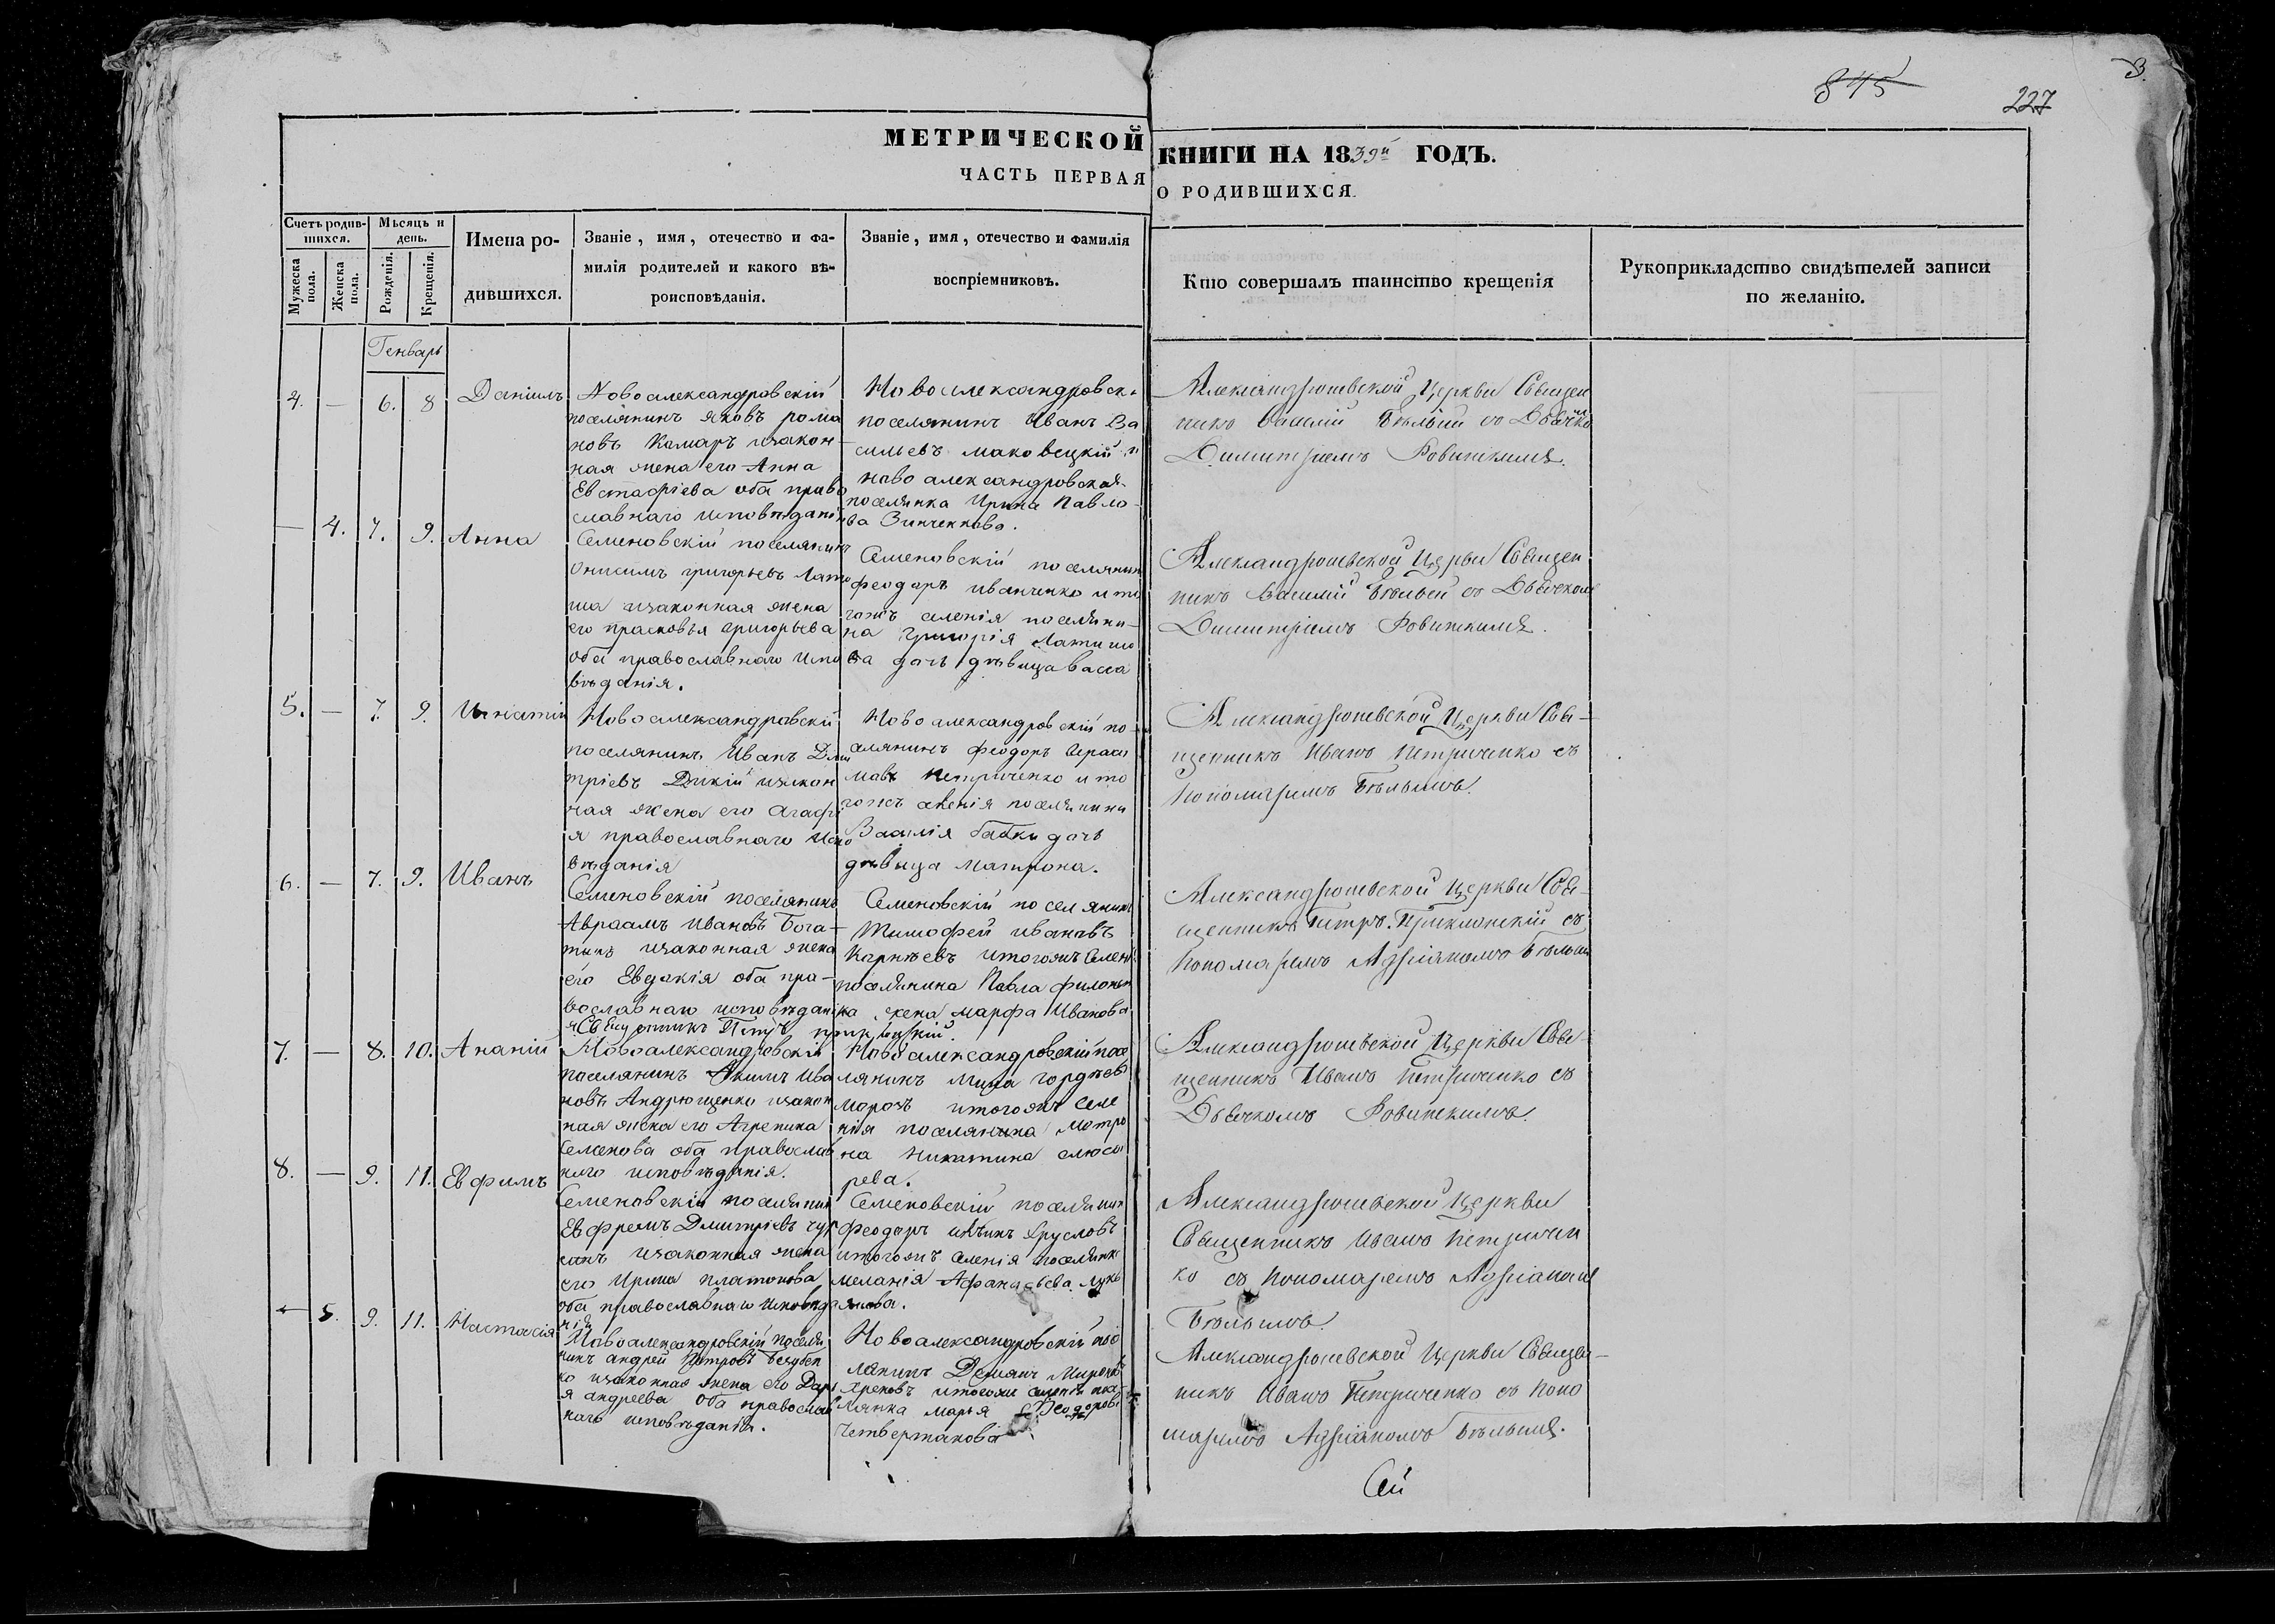 845
3.
227
МЕТРИЧЕСКОЙ КНИГИ НА 1839й ГОДЪ.
ЧАСТЬ ПЕРВАЯ О РОДИВШИХСЯ.
Счетъ родив-
шихся.
Мѣсяцъ и
день.
Мужеска
пола.
Женска
пола.
Рожденія.
Крещенія.
Имена ро-
дившихся.
Званіе, имя, отечество и фа-
милія родителей и какого вѣ-
роисповѣданія.
Званіе, имя, отечество и фамилія
воспріемниковъ.
Кто совершалъ таинство крещенія
Рукоприкладство свидѣтелей записи
по желанію.
Генварь
4. — 6. 8 Даніилъ
Новоалександровскій
поселянинъ яковъ рома
новъ Комаръ изакон
ная жена его Анна
Евстафіева оба право
славнаго исповѣданія
Новоалександровск
поселянинъ Иванъ Ва
сильевъ маковецкій и
ново александровская
поселянка Ирина Павло
ва Зинченкова.
Александровской Церкви Священ
никъ Василій Бѣлый со Дьячко
Димитріемъ
— 4. 7. 9. Анна
Семеновскій поселянинъ
Онисимъ григорьевъ Лати
ша изаконная жена
его прасковья григорьева
оба православнаго испо
вѣданія.
Семеновскій поселянин
феодоръ иванченко и то
гожъ селенія поселяни-
на Григорія Латишо
ва дочь дѣвица васса
Церкви Священ
никъ Василій Бѣлый со Дьячкомъ
Димитріемъ
5. — 7. 9. Игнатій
Новоалександровскій
поселянинъ Иванъ Дми
тріевъ Дикій изакон
ная жена его Агафі
я православнаго Испо
вѣданія
Ново александровскій по
селянинъ феодоръ Гераси
мовъ Петриченко и то
гожъ селенія поселянина
Василія бабки дочь
дѣвица Матрона.
Церкви Свя-
щенникъ Иванъ Петриченко съ
пономаремъ Бѣлымъ.
6. — 7. 9. Иванъ
Семеновскій поселянинъ
Авраамъ Ивановъ Бога-
тырь изаконная жена
его Евдокія оба пра-
вославнаго исповѣдані
я Священникъ Петръ
Семеновскій поселянинъ
Тимофей ивановъ
Карнѣевъ итогожъ Селені
поселянина Павла филонен
ка жена марфа Иванова
Церкви Свя-
щенникъ Петръ Приклонскій съ
пономаремъ Адріаномъ Бѣлым
7. — 8. 10. Ананій
Новоалександровскій
поселянинъ Якимъ Ива
новъ Андрющенко изакон
ная жена его Агрепина
Семенова оба православ
наго исповѣданія.
Новоалександровскій посе
лянинъ Мина гордѣевъ
морозъ итогожъ Селе
нія поселянина Матро
на Никитина слюса
рева.
Церкви Свя-
щенникъ Иванъ Петриченко съ
Дьячкомъ
8. — 9. 11. Евфимъ
Семеновскій поселянин
Евфремъ Дмитріевъ
изаконная жена
его Ирина платонова
оба православнаго исповѣда
нія
Семеновскій поселянин
феодоръ Хрусловъ
итогожъ селенія поселянк
меланія Афанасьева Лукь
янова.
Церкви
Священникъ Иванъ Петричен
ко съ пономаремъ Адріаном
Бѣлымъ.
— 5. 9. 11. Настасія
Новоалександровскій поселя
нинъ андрей Петровъ
ко изаконная жена его Дарь
я андреева оба православ
наго исповѣданія.
Новоалександровскій посе
лянинъ Демянъ Мироновъ
итогоже селенія посе
лянка марья Феодорова
Четвертакова
Церкви Священ-
никъ Иванъ Петриченко съ поно
маремъ Адріаномъ Бѣлымъ.